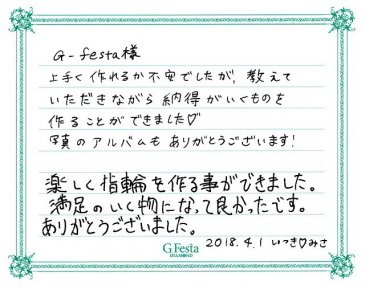 G-festa様
上手く作れるか不安でしたが、教えて
いただきながら納得がいくものを
作ることができました♡
写真のアルバムもありがとうございます!
楽しく指輪を作る事ができました。
満足のいく物になって良かったです。
ありがとうございました。
2018.4.1 いつき♡みさ
G.Festa
DIAMOND